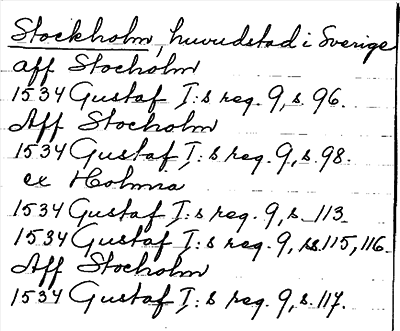 Stockholm, huvudstad i Sverige
aff Stocholm
1534 Gustaf I:s reg. 9, s. 96.
Aff Stocholm
1534 Gustaf I:s reg. 9, s. 98.
ex Holmia
1534 Gustaf I:s reg. 9, s. 113
1534 Gustaf I:s reg. 9, ss. 115, 116.
Aff Stocholm
1534 Gustaf I:s reg. 9, s. 117.